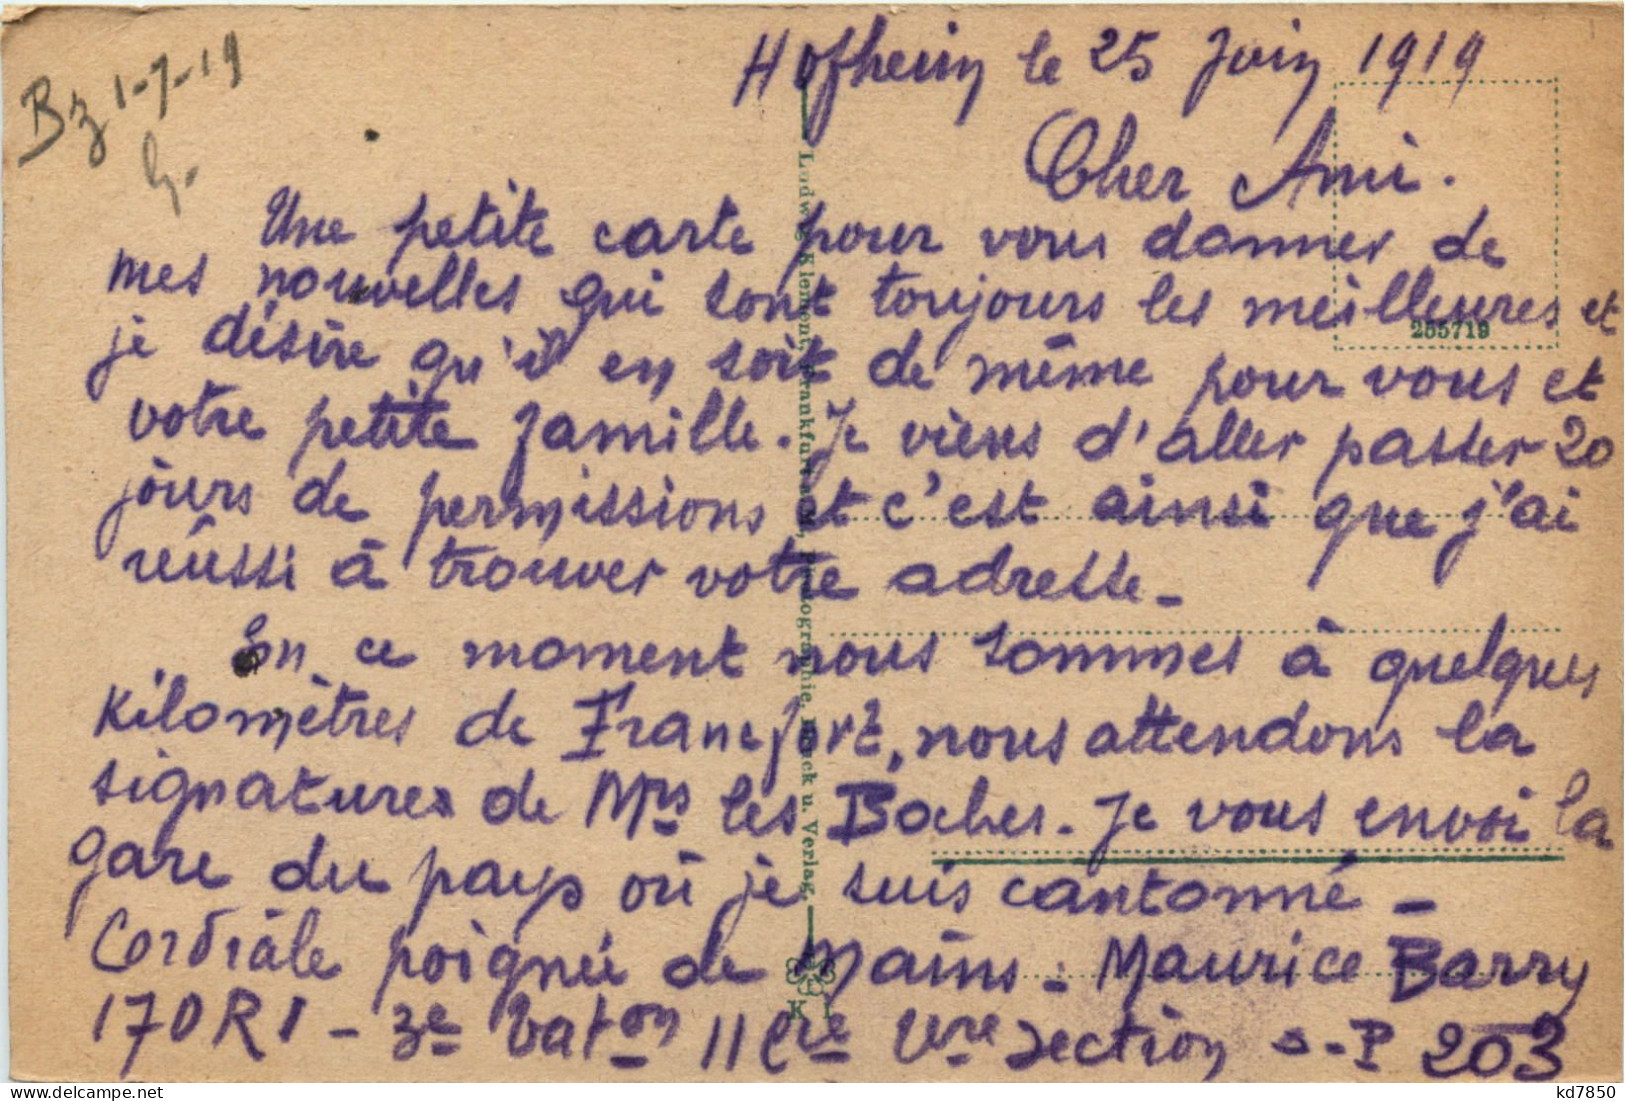 Bz 1-7-19
Hofheim le 25 Juin 1919
Cher Ami.
Une petite carte pour vous donner de
mes nouvelles qui sont toujours les meilleures et
je désire qu'il en soit de même pour vous et
votre petite famille. Je viens d'aller passer 20
jours de permissions et c'est ainsi que j'ai
réussi à trouver votre adresse -
En ce moment nous sommes à quelques
Kilomètres de Francfort, nous attendons la
signatures de Mrs les Boches - Je vous envoi la
gare du pays où je suis cantonné -
Cordiale poignée de mains - Maurice Barry
170 RI - 3e Batton 11 Cie 1ère section S.P 203
Ludwig Klement, Frankfurt a. M., Photographie, Druck u. Verlag.
K I
255719
kd7850